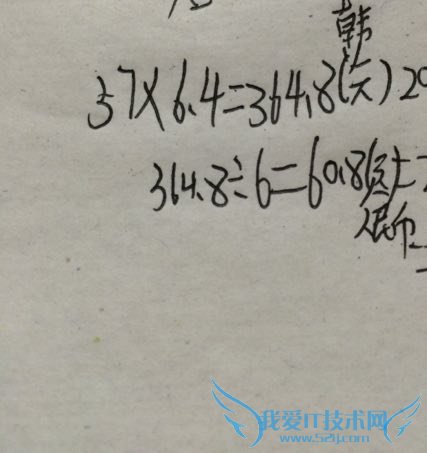 韩
57×6.4=364.8(元)20
364.8÷6=60.8(元)
人民币
我爱IT技术网
www.52ij.com